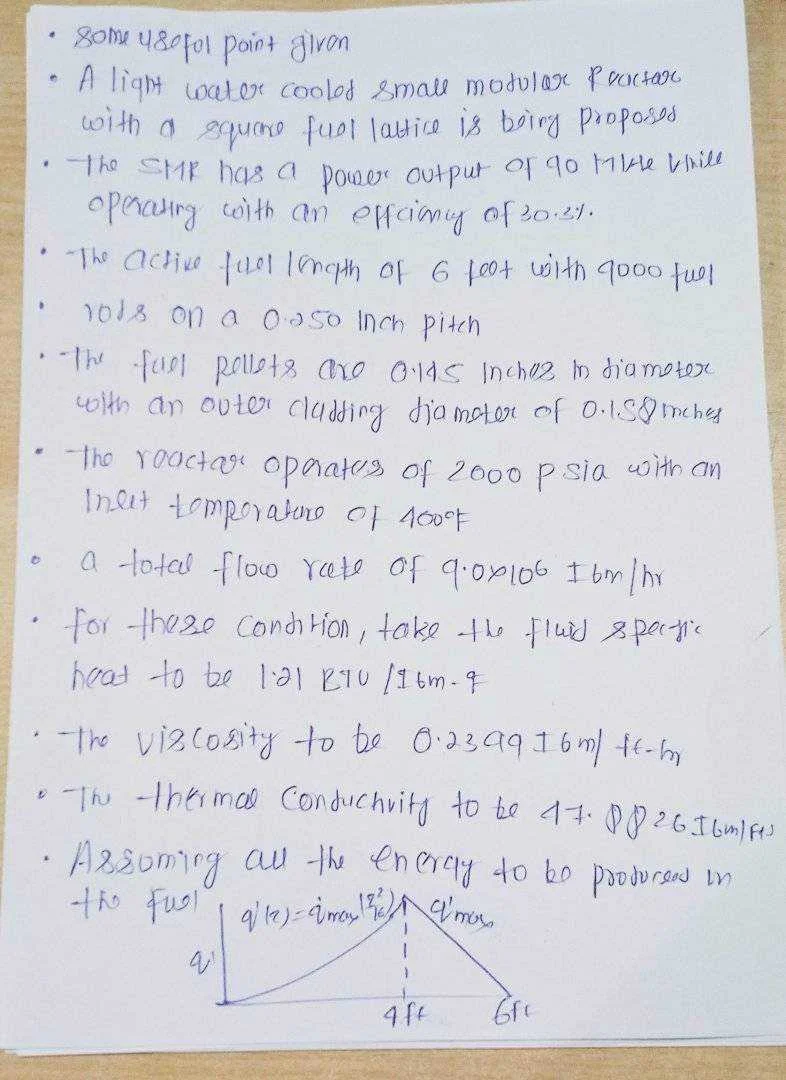 • Some useful point given
• A light water cooled small modular Reactor
with a square fuel lattice is being proposed
• The SMR has a power output of 90 MWe while
operating with an efficimy of 30.2%.
• The active fuel length of 6 feet with 9000 fuel
• rods on a 0.250 Inch pitch
• The fuel pellets are 0.145 Inches in diameter
with an outer cladding diameter of 0.158 inches
• The reactor operates of 2000 psia with an
Inlet temperature of 400°F
• a total flow rate of 9.0x106 Ibm/hr
• for these condition, take the fluid specific
heat to be 1.21 BTU/Ibm-°F
• The viscosity to be 0.2399 Ibm/ft-hr
• The thermal Conductivity to be 47.8826 Ibm/ft3
• Assuming all the energy to be produced in
the fuel
q'(z) = q'max
q'max
q'
4ft 6ft